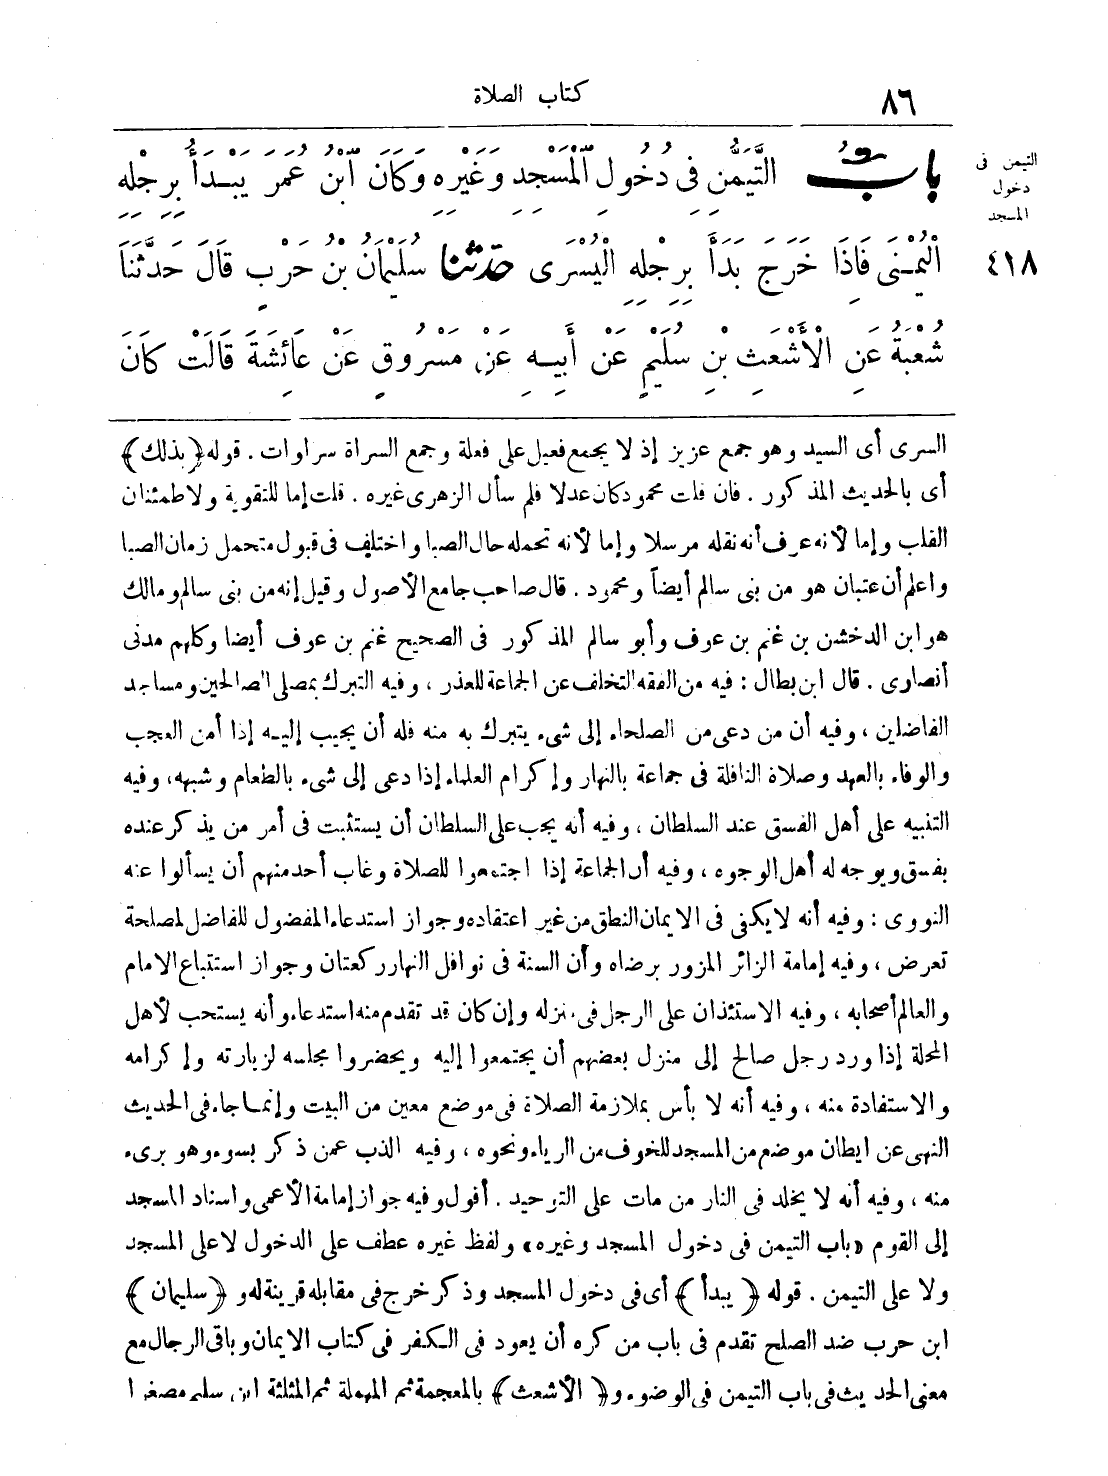 ٨٦
كتاب الصلاة
التيمن فى
دخول
المسجد
٤١٨
بابُ التَّيَمُّنِ فِى دُخُولِ الْمَسْجِدِ وَغَيْرِهِ وَكَانَ ابْنُ عُمَرَ يَبْدَأُ بِرِجْلِهِ
الْيُمْنَى فَاذَا خَرَجَ بَدَأَ بِرِجْلِهِ الْيُسْرَى حدثنا سُلَيْمَانُ بْنُ حَرْبٍ قَالَ حَدَّثَنَا
شُعْبَةُ عَنِ الْأَشْعَثِ بْنِ سُلَيْمٍ عَنْ أَبِيهِ عَنْ مَسْرُوقٍ عَنْ عَائِشَةَ قَالَتْ كَانَ
السرى أى السيد وهو جمع عزيز إذ لا يجمع فعيل على فعلة وجمع السراة سراوات . قوله ﴿بذلك﴾
أى بالحديث المذكور . فان قلت محمود كان عدلا فلم سأل الزهرى غيره . قلت إما للتقوية ولاطمئنان
القلب وإما لأنه عرف أنه نقله مرسلا وإما لأنه تحمله حال الصبا واختلف فى قبول متحمل زمان الصبا
واعلم أن عتبان هو من بنى سالم أيضاً ومحمود . قال صاحب جامع الأصول وقيل إنه من بنى سالم ومالك
هو ابن الدخشن بن غنم بن عوف وأبو سالم المذكور فى الصحيح غنم بن عوف أيضا وكلهم مدنى
أنصارى . قال ابن بطال : فيه من الفقه التخلف عن الجماعة للعذر ، وفيه التبرك بمصلى الصالحين ومساجد
الفاضلين ، وفيه أن من دعى من الصلحاء إلى شىء يتبرك به منه فله أن يجيب إليه إذا أمن العجب
والوفاء بالعهد وصلاة النافلة فى جماعة بالنهار وإكرام العلماء إذا دعى إلى شىء بالطعام وشبهه، وفيه
التنبيه على أهل الفسق عند السلطان ، وفيه أنه يجب على السلطان أن يستثبت فى أمر من يذكر عنده
بفسق ويوجه له أهل الوجوه ، وفيه أن الجماعة إذا اجتمعوا للصلاة وغاب أحد منهم أن يسألوا عنه
النووى : وفيه أنه لا يكفى فى الايمان النطق من غير اعتقاده وجواز استدعاء المفضول للفاضل لمصلحة
تعرض ، وفيه إمامة الزائر المزور برضاه وأن السنة فى نوافل النهار ركعتان وجواز استتباع الامام
والعالم أصحابه ، وفيه الاستئذان على الرجل فى منزله وإن كان قد تقدم منه استدعاء وأنه يستحب لأهل
المحلة إذا ورد رجل صالح إلى منزل بعضهم أن يجتمعوا إليه ويحضروا مجلسه لزيارته وإكرامه
والاستفادة منه ، وفيه أنه لا بأس بملازمة الصلاة فى موضع معين من البيت وإنما جاء فى الحديث
النهى عن ايطان موضع من المسجد للخوف من الرياء ونحوه ، وفيه الذب عمن ذكر بسوء وهو برىء
منه ، وفيه أنه لا يخلد فى النار من مات على التوحيد . أقول وفيه جواز إمامة الأعمى واسناد المسجد
إلى القوم «باب التيمن فى دخول المسجد وغيره» ولفظ غيره عطف على الدخول لا على المسجد
ولا على التيمن . قوله ﴿يبدأ﴾ أى فى دخول المسجد وذكر خرج فى مقابله قرينة له و ﴿سليمان﴾
ابن حرب ضد الصلح تقدم فى باب من كره أن يعود فى الكفر فى كتاب الايمان وباقى الرجال مع
معنى الحديث فى باب التيمن فى الوضوء و ﴿الأشعث﴾ بالمعجمة ثم المهملة ثم المثلثة ابن سليم مصغرا